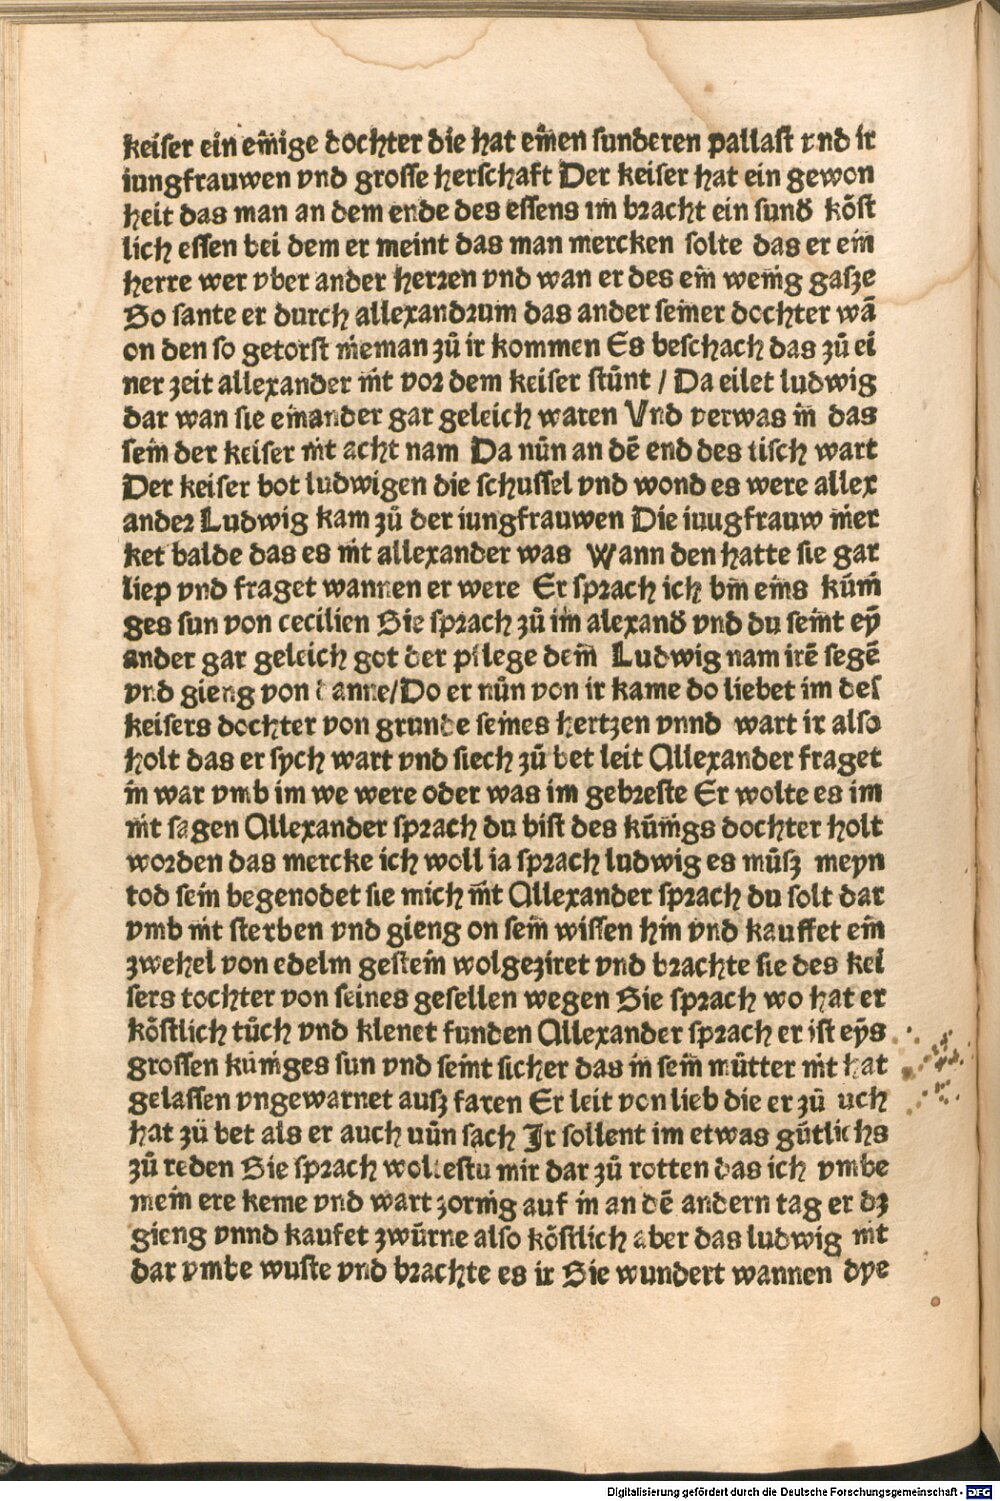 keiser ein einige dochter die hat einen sunderen pallast vnd ir
iungfrauwen vnd grosse herschaft Der keiser hat ein gewon
heit das man an dem ende des essens im bracht ein sund̛ kőst
lich essen bei dem er meint das man mercken solte das er ein
herre wer vber ander herren vnd wan er des ein wenig gasze
So sante er durch allexandrum das ander seiner dochter wā
on den so getorst nieman zů ir kommen Es beschach das zů ei
ner zeit allexander nit vor dem keiser stůnt / Da eilet ludwig
dar wan sie einander gar geleich waren Vnd verwas in das
sein der keiser nit acht nam Da nůn an dē end des tisch wart
Der keiser bot ludwigen die schussel vnd wond es were allex
ander Ludwig kam zů der iungfrauwen Die iuugfrauw mer
ket balde das es nit allexander was Wann den hatte sie gar
liep vnd fraget wannen er were Er sprach ich bin eins kůni
ges sun von cecilien Sie sprach zů im alexand̛ vnd du seint eÿ
ander gar geleich got der pflege dein Ludwig nam irē segē
vnd gieng von danne/Do er nůn von ir kame do liebet im des
keisers dochter von grunde seines hertzen vnnd wart ir also
holt das er sych wart vnd siech zů bet leit Allexander fraget
in war vmb im we were oder was im gebreste Er wolte es im
nit sagen Allexander sprach du bist des kůnigs dochter holt
worden das mercke ich woll ia sprach ludwig es můsz meyn
tod sein begenodet sie mich nit Allexander sprach du solt dar
vmb nit sterben vnd gieng on sein wissen hin vnd kauffet ein
zwehel von edelm gestein wolgeziret vnd brachte sie des kei
sers tochter von seines gesellen wegen Sie sprach wo hat er
kőstlich tůch vnd klenet funden Allexander sprach er ist eÿs
grossen kůniges sun vnd seint sicher das in sein můtter nit hat
gelassen vngewarnet ausz faren Er leit von lieb die er zů uch
hat zů bet als er auch uůn sach Ir sollent im etwas gůtlichs
zů reden Sie sprach woltestu mir dar zů rotten das ich vmbe
mein ere keme vnd wart zornig auf in an dē andern tag er dz
gieng vnnd kaufet zwůrne also kőstlich aber das ludwig nit
dar vmbe wuste vnd brachte es ir Sie wundert wannen dye
Digitalisierung gefördert durch die Deutsche Forschungsgemeinschaft - DFG